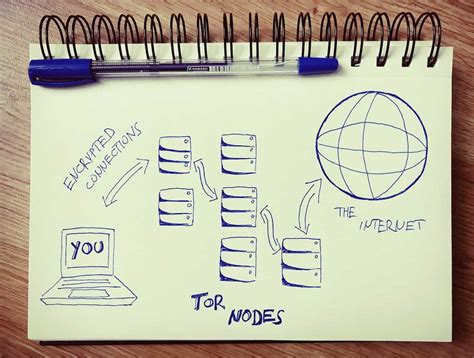 ENCRYPTED
CONNECTIONS
YOU
THE INTERNET
TOR NODES